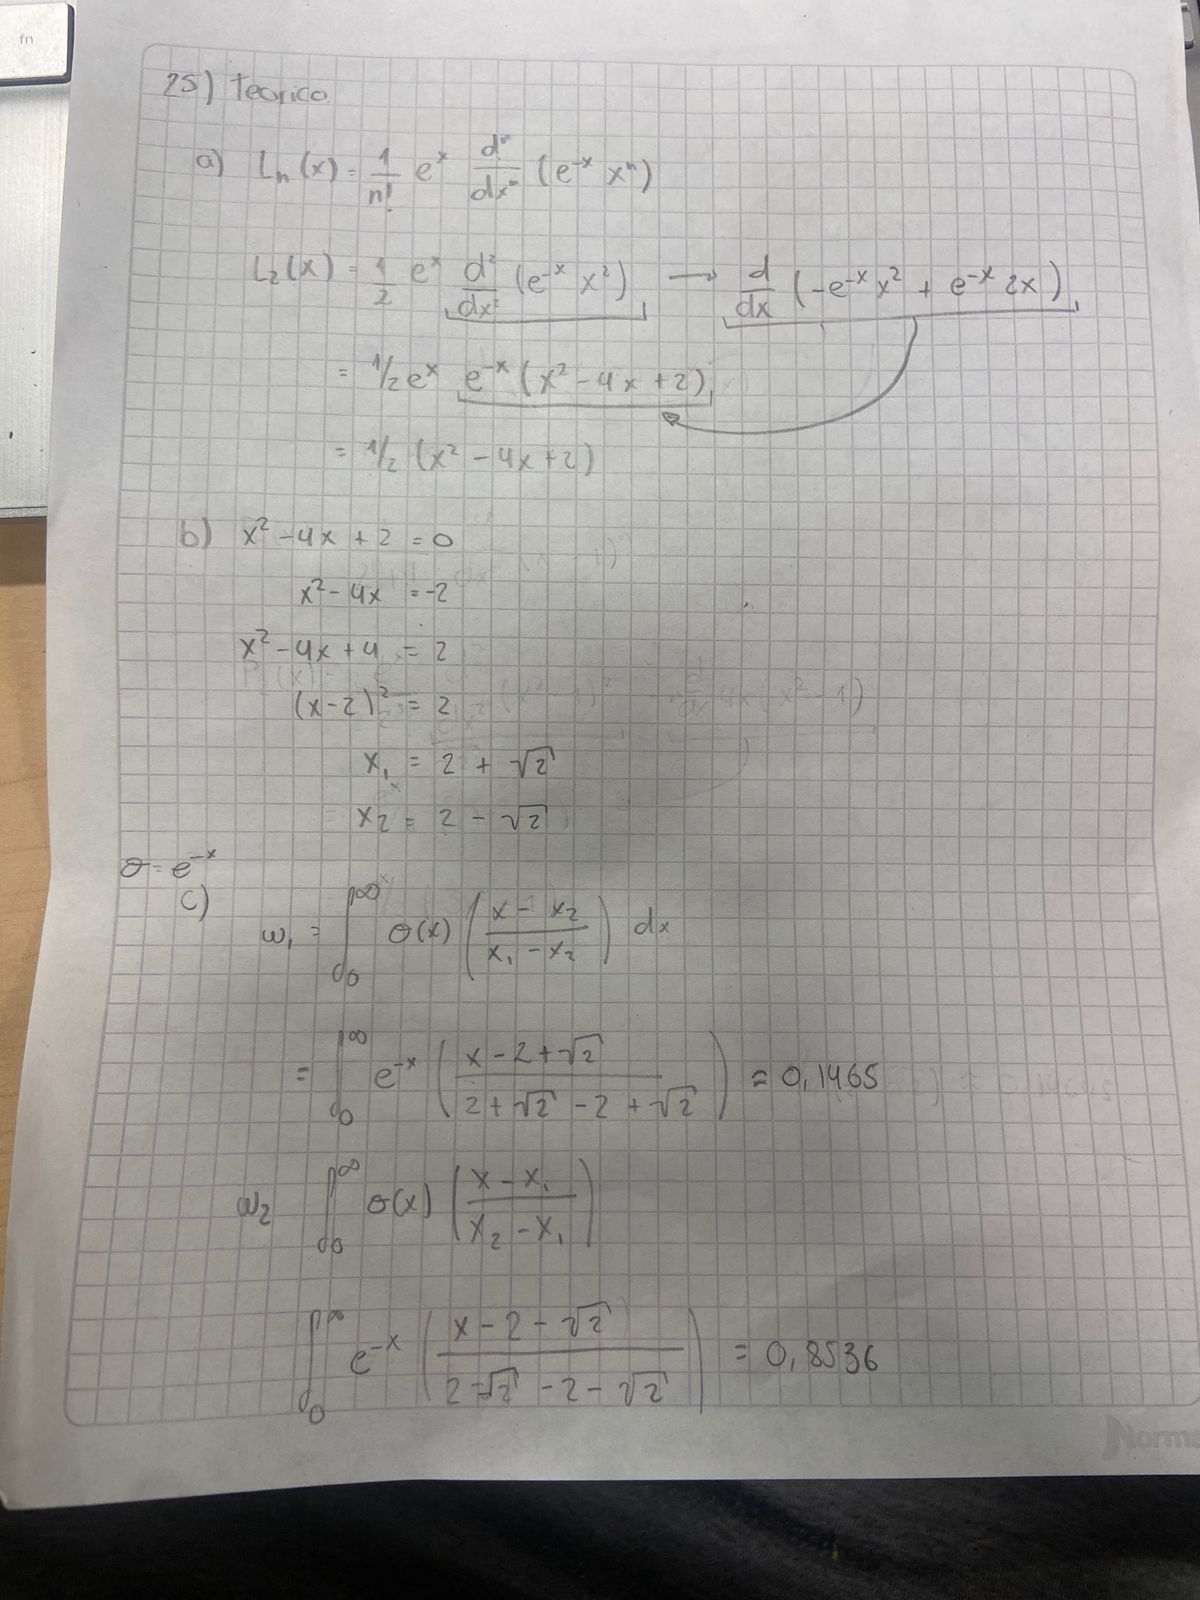 fn
25) Teorico
a) Ln(x) = 1/n! e^x d^n/dx^n (e^-x x^n)
L2(x) = 1/2 e^x d²/dx² (e^-x x²) → d/dx (-e^-x x² + e^-x 2x)
= 1/2 e^x e^-x (x² - 4x + 2)
= 1/2 (x² - 4x + 2)
b) x² - 4x + 2 = 0
x² - 4x = -2
x² - 4x + 4 = 2
(x-2)² = 2
x₁ = 2 + √2
x₂ = 2 - √2
σ = e^-x
c) ω₁ = ∫₀^∞ σ(x) ((x - x₂)/(x₁ - x₂)) dx
= ∫₀^∞ e^-x ((x - 2 + √2)/(2 + √2 - 2 + √2)) = 0,1465
ω₂ ∫₀^∞ σ(x) ((x - x₁)/(x₂ - x₁))
∫₀^∞ e^-x ((x - 2 - √2)/(2 - √2 - 2 - √2)) = 0,8536
Norma